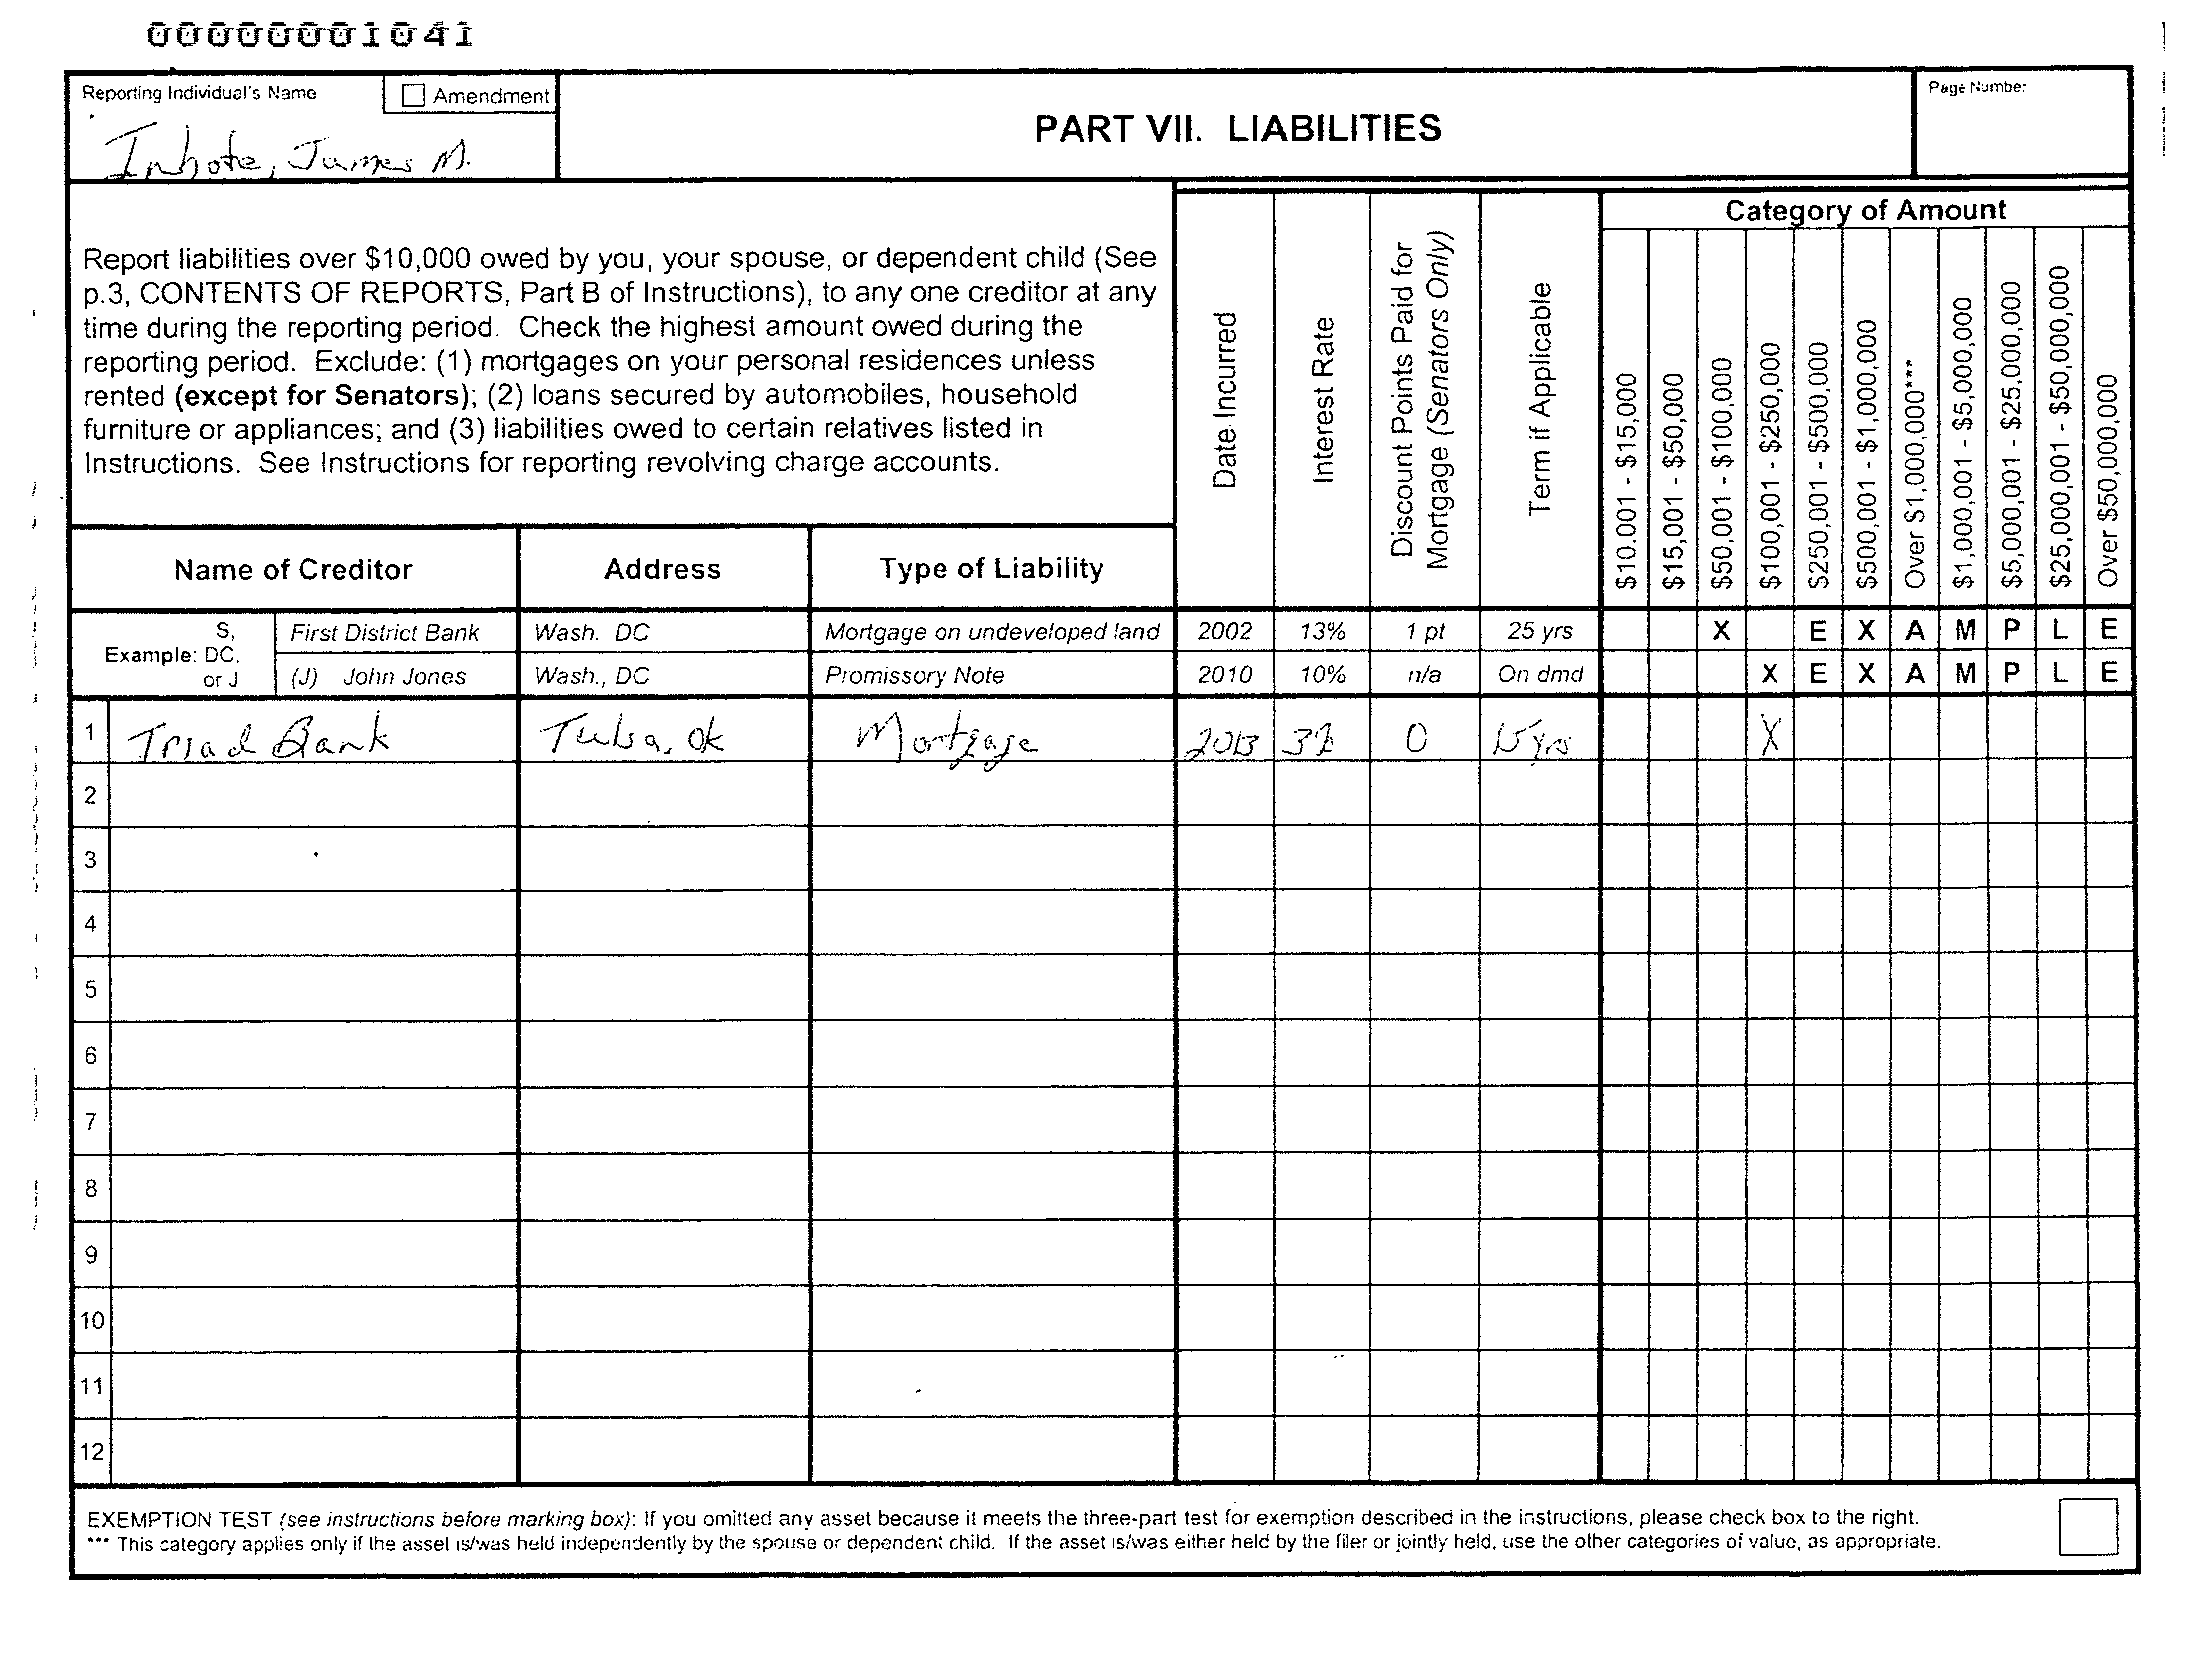 00000001041
Reporting Individual's Name
Amendment
Inhofe, James M.
PART VII. LIABILITIES
Page Number
Report liabilities over $10,000 owed by you, your spouse, or dependent child (See
p.3, CONTENTS OF REPORTS, Part B of Instructions), to any one creditor at any
time during the reporting period. Check the highest amount owed during the
reporting period. Exclude: (1) mortgages on your personal residences unless
rented (except for Senators); (2) loans secured by automobiles, household
furniture or appliances; and (3) liabilities owed to certain relatives listed in
Instructions. See Instructions for reporting revolving charge accounts.
Name of Creditor
Address
Type of Liability
Date Incurred
Interest Rate
Discount Points Paid for
Mortgage (Senators Only)
Term if Applicable
Category of Amount
$10,001 - $15,000
$15,001 - $50,000
$50,001 - $100,000
$100,001 - $250,000
$250,001 - $500,000
$500,001 - $1,000,000
Over $1,000,000***
$1,000,001 - $5,000,000
$5,000,001 - $25,000,000
$25,000,001 - $50,000,000
Over $50,000,000
Example: S, DC, or J
First District Bank Wash. DC Mortgage on undeveloped land 2002 13% 1 pt 25 yrs X E X A M P L E
(J) John Jones Wash., DC Promissory Note 2010 10% n/a On dmd X E X A M P L E
1 Triad Bank Tulsa, Ok Mortgage 2013 3% 0 15 yrs X
2
3
4
5
6
7
8
9
10
11
12
EXEMPTION TEST (see instructions before marking box): If you omitted any asset because it meets the three-part test for exemption described in the instructions, please check box to the right.
*** This category applies only if the asset is/was held independently by the spouse or dependent child. If the asset is/was either held by the filer or jointly held, use the other categories of value, as appropriate.